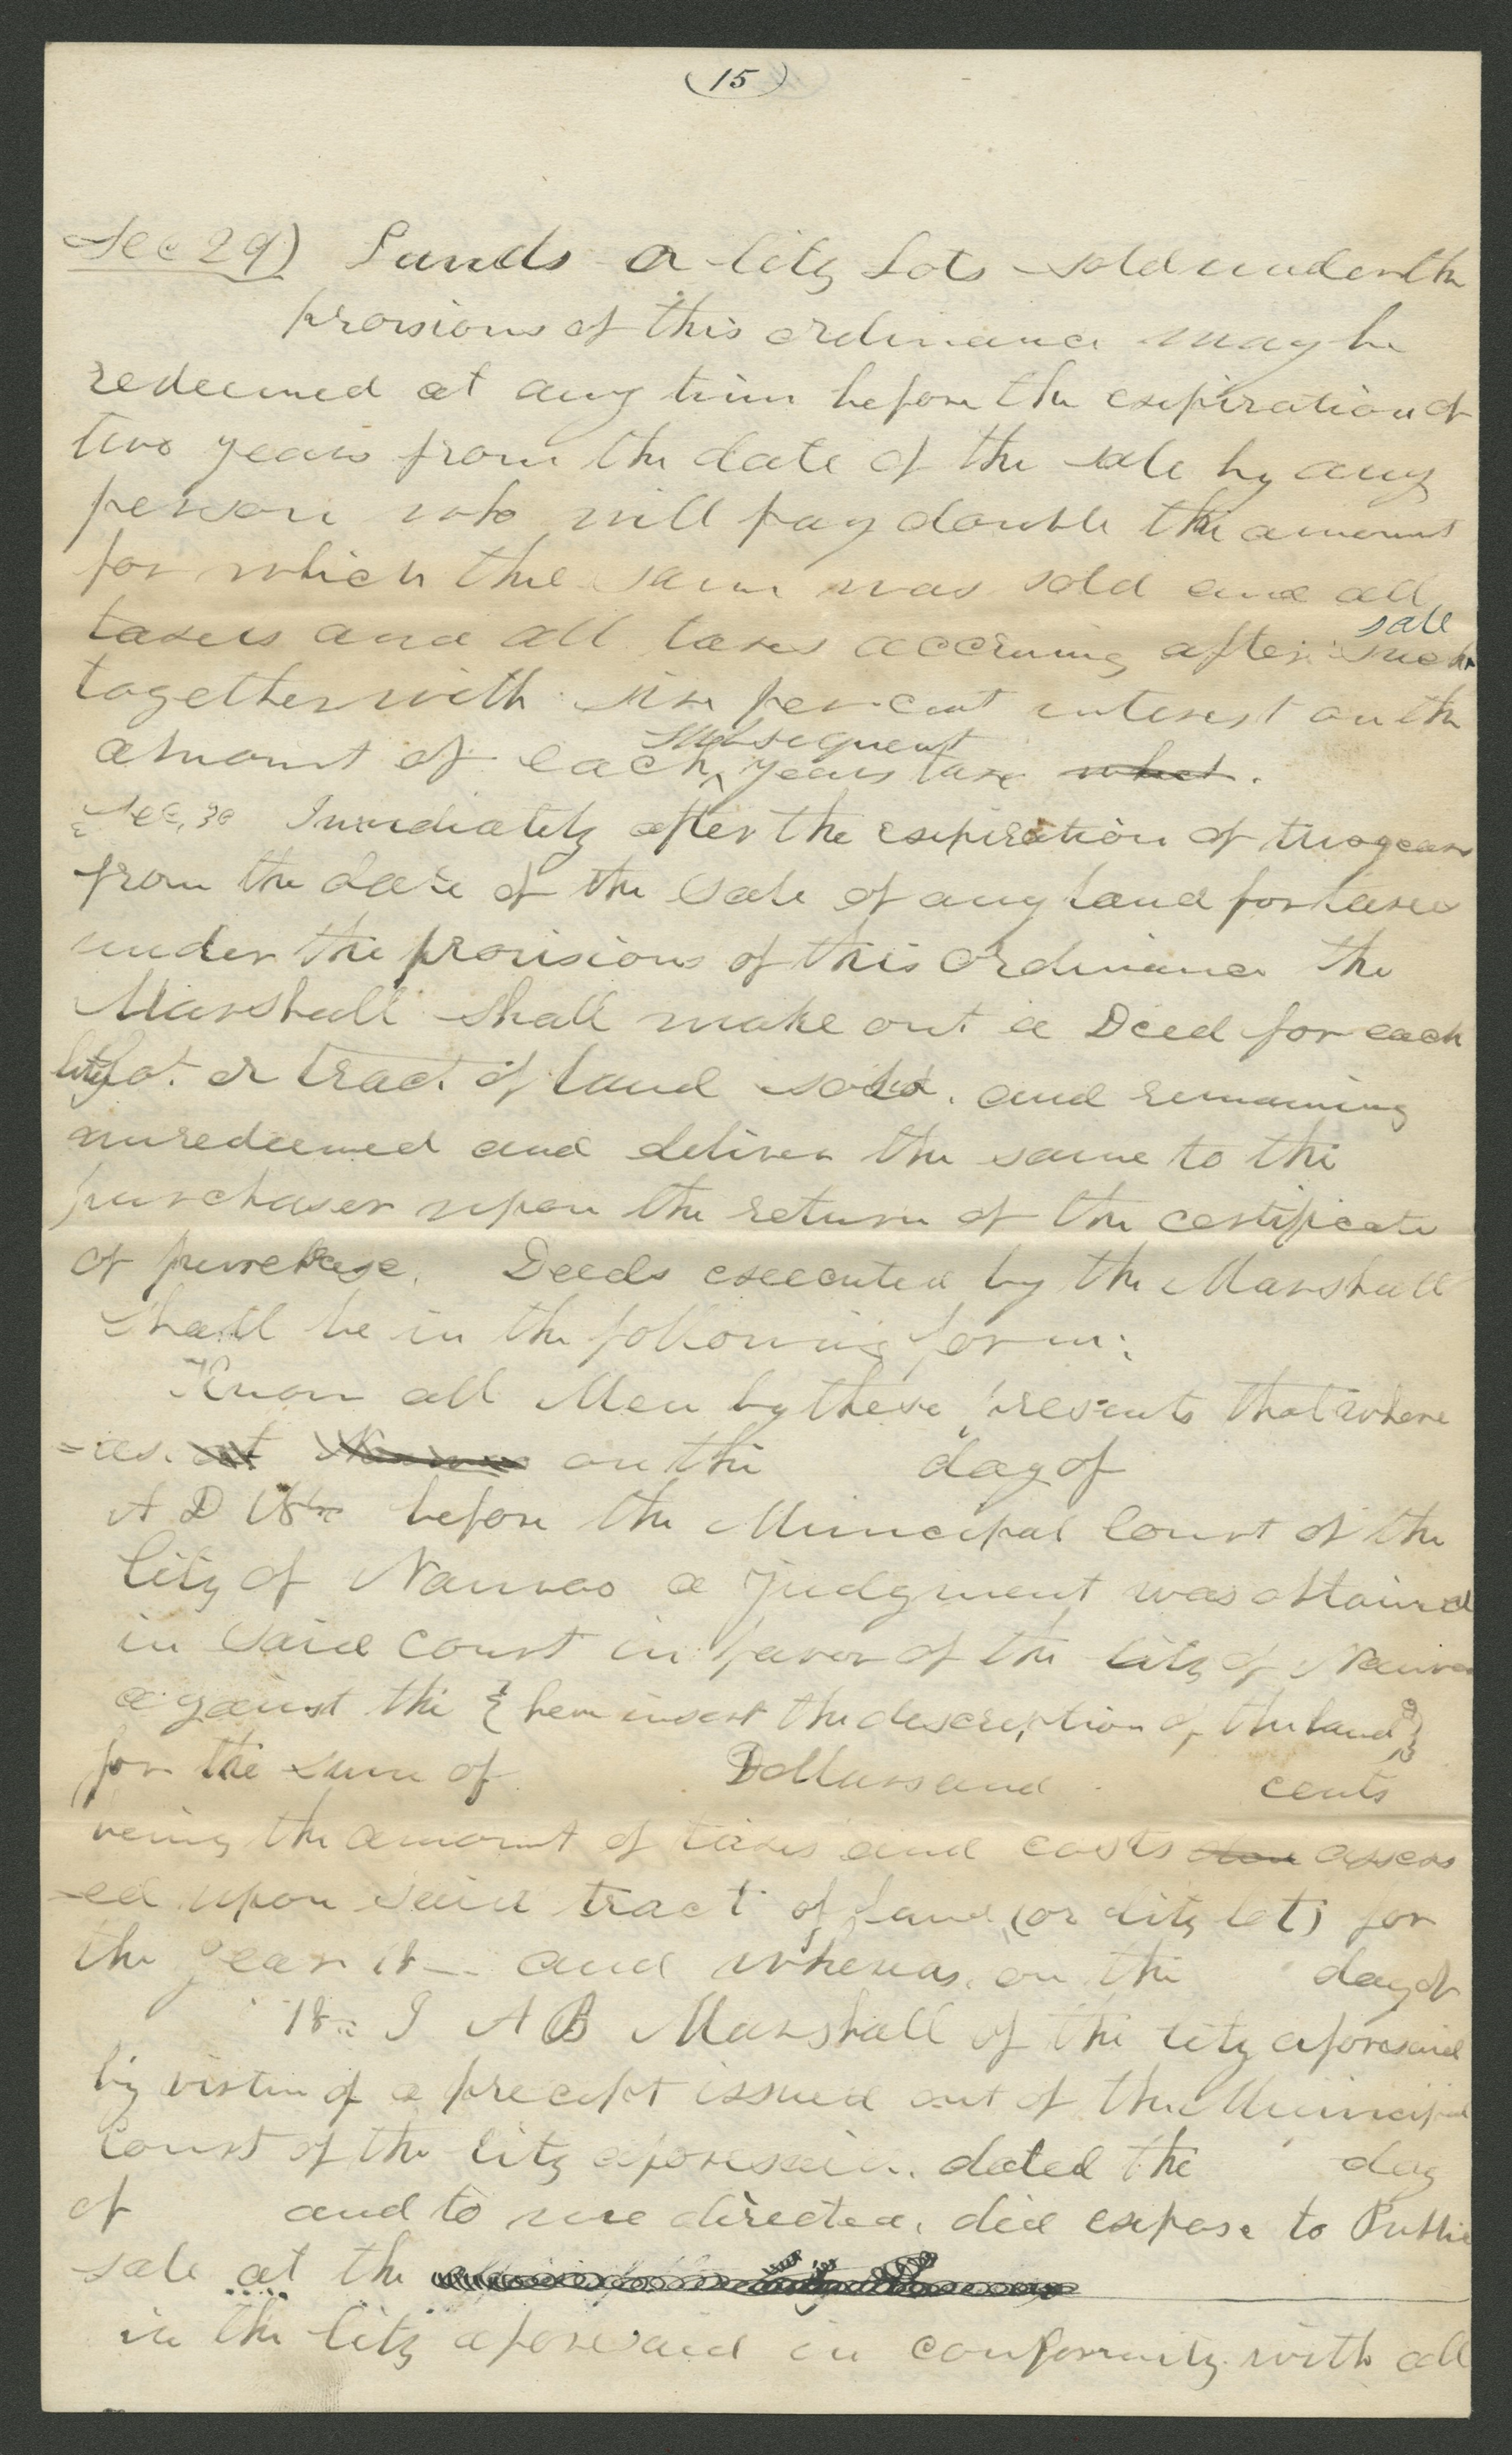 (15)
Sec 29) Lands or City Lots sold under the
provisions of this ordinance may be
redeemed at any time before the expiration of
two years from the date of the sale by any
person who will pay double the amount
for which the same was sold and all
taxes and all taxes accruing after such sale
together with six per cent interest on the
amount of each subsequent years tax what.
Sec. 30 Immediately after the expiration of two years
from the date of the sale of any land for taxes
under the provisions of this ordinance the
Marshall shall make out a Deed for each
City Lot or tract of land sold. and remaining
unredeemed and deliver the same to the
purchaser upon the return of the certificate
of purchase. Deeds executed by the Marshall
shall be in the following form:
Know all Men by these presents that where
=as. at on the day of
A D 18— before the Municipal Court of the
City of Nauvoo a judgment was obtained
in said court in favor of the City of Nauvoo
against the { here insert the description of the land }
for the sum of Dollars and cents
being the amount of taxes and costs due assess
-ed upon said tract of land (or City lot) for
the year 18— and whereas, on the day of
18— I A B Marshall of the City aforesaid
by virtue of a precept issued out of the Municipal
Court of the City aforesaid. dated the day
of and to me directed, did expose to Public
sale at the
in the City aforesaid in conformity with all